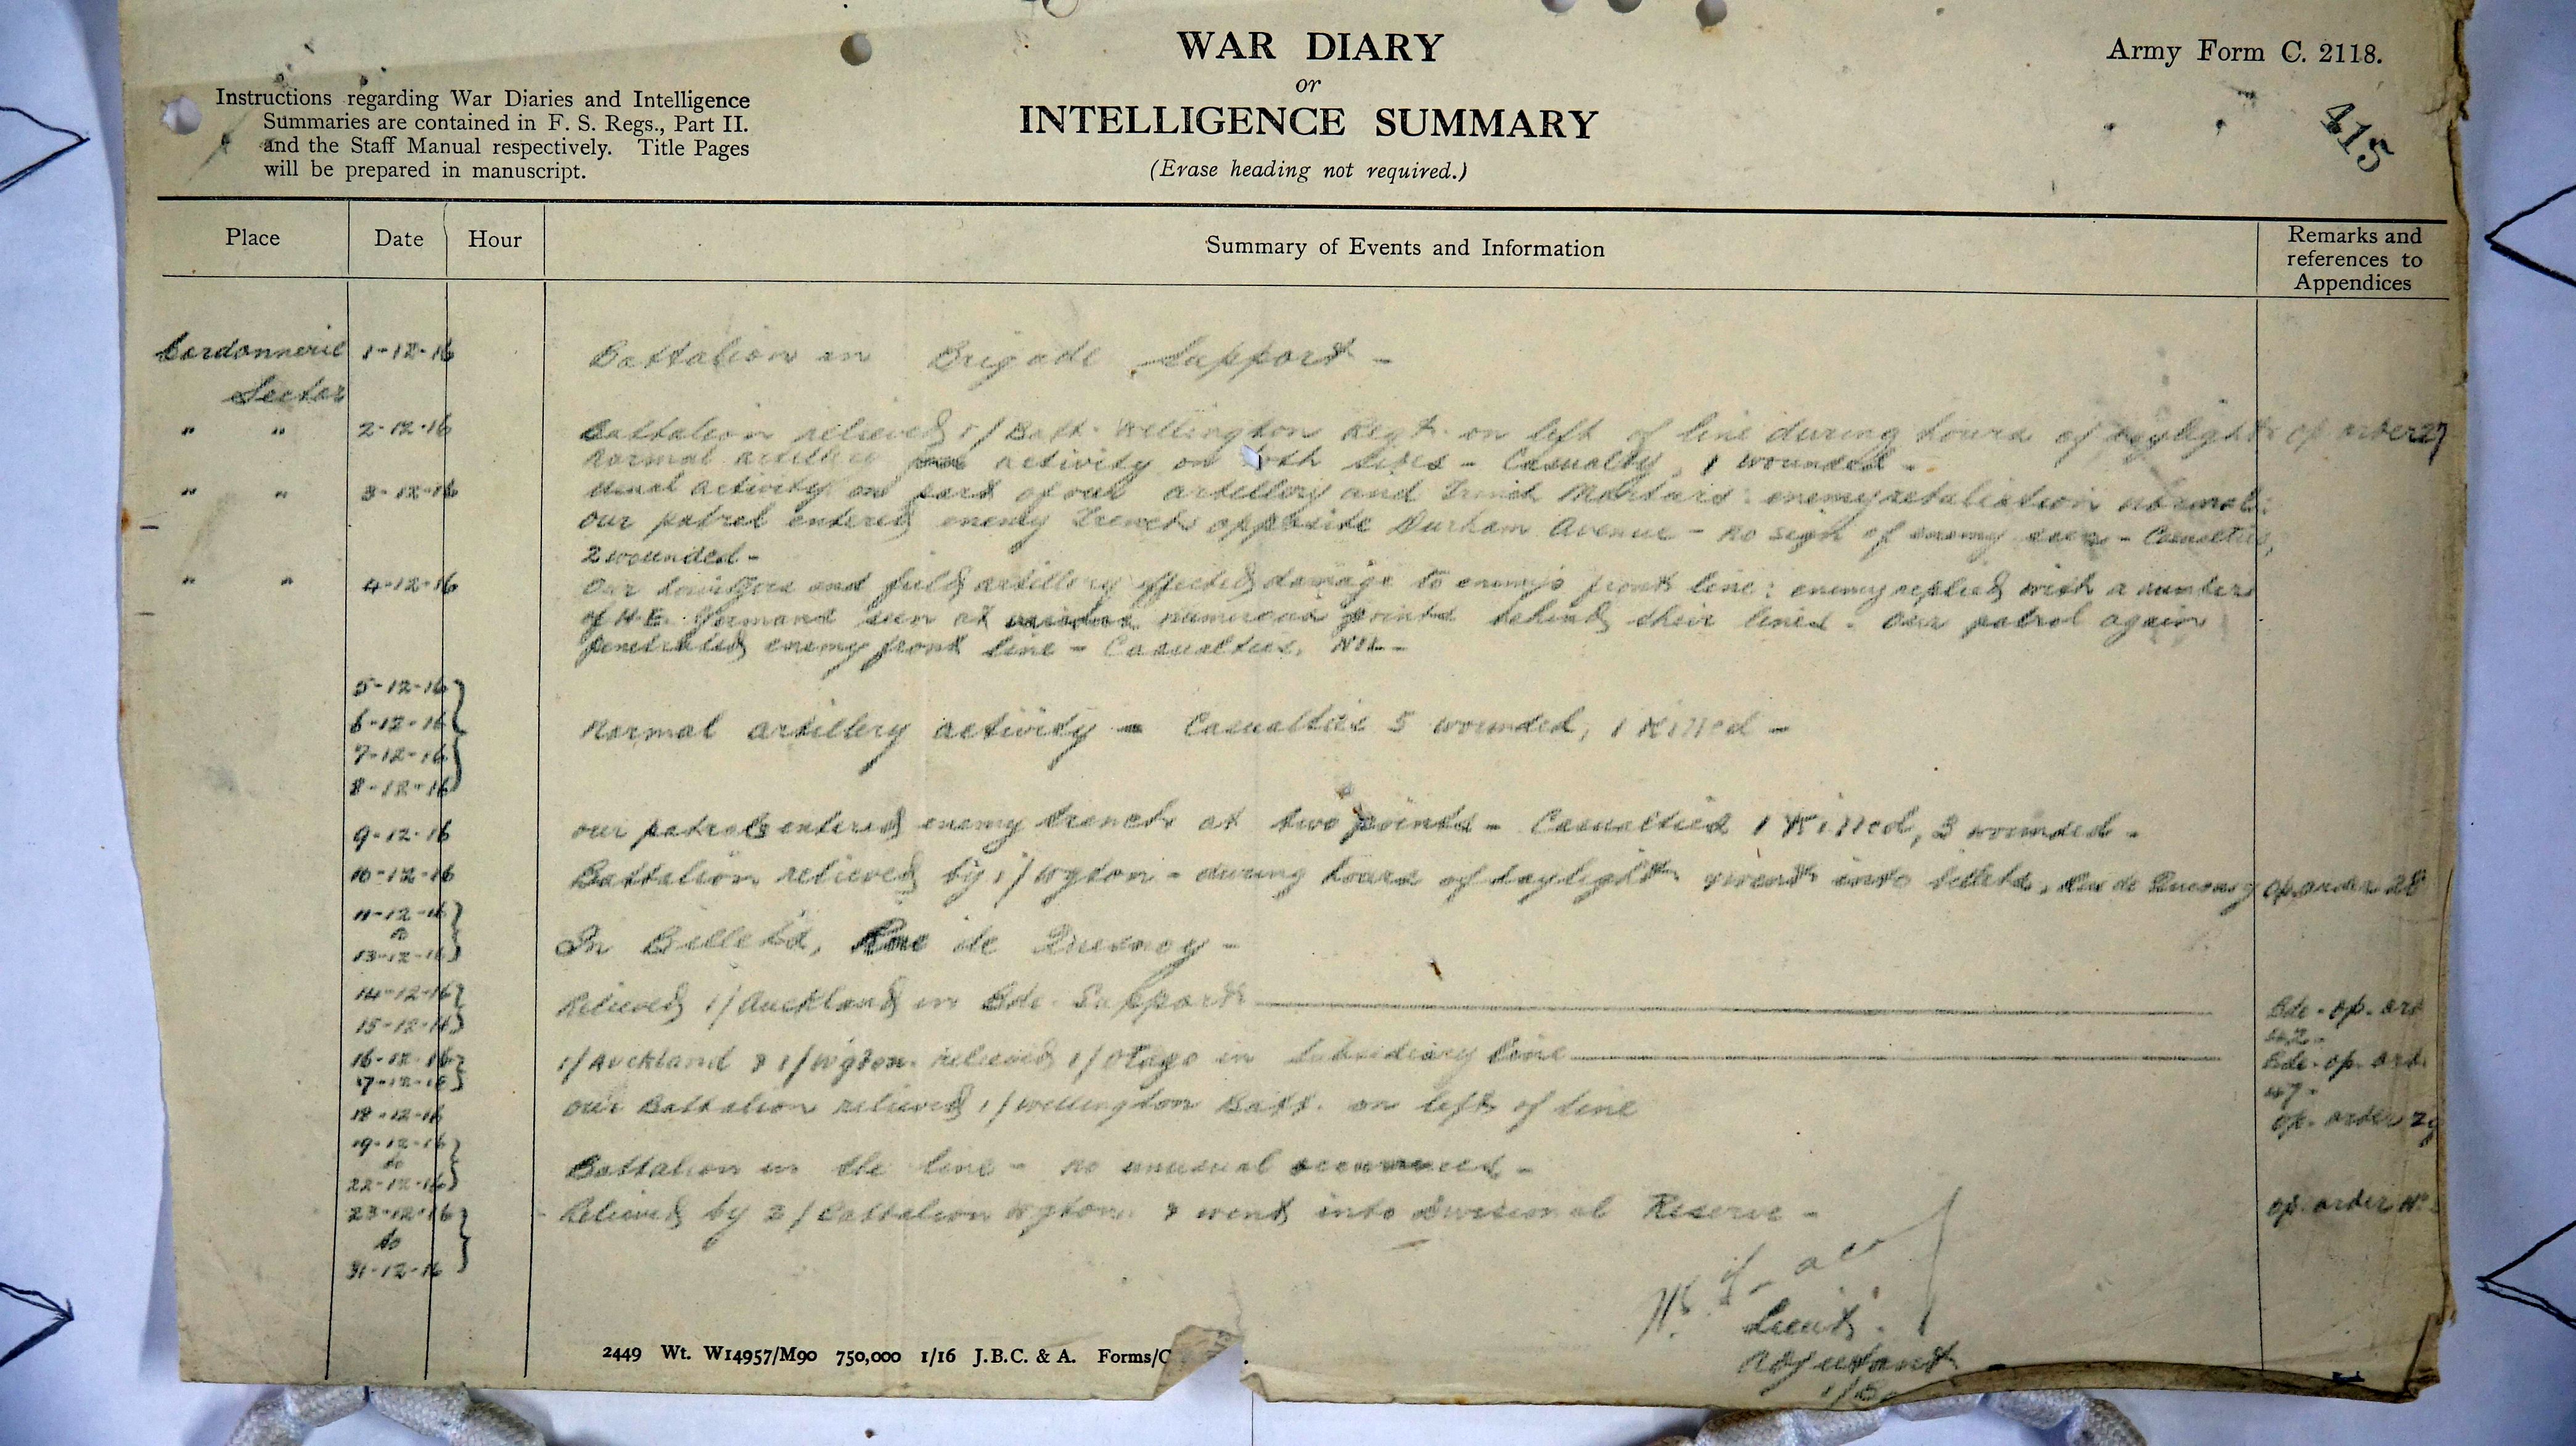 WAR DIARY
or
INTELLIGENCE SUMMARY
(Erase heading not required.)
Army Form C. 2118.
415
Instructions regarding War Diaries and Intelligence
Summaries are contained in F. S. Regs., Part II.
and the Staff Manual respectively. Title Pages
will be prepared in manuscript.
Place Date Hour Summary of Events and Information Remarks and references to Appendices
Cordonnerie 1-12-16 Battalion in Brigade Support -
Sector
" " 2-12-16 Battalion relieved 1/Batt. Wellington Regt. on left of line during hours of daylight op order 27
Normal artillery activity on both sides - Casualty, 1 wounded -
" " 3-12-16 Usual activity on part of our artillery and Trench Mortars: enemy retaliation normal:
our patrol entered enemy trench opposite Durham Avenue - no sign of enemy seen - Casualties,
2 wounded -
" " 4-12-16 Our howitzers and field artillery effected damage to enemy's front line: enemy replied with a number
of H.E. Germans seen at numerous points behind their lines. Our patrol again
penetrated enemy front line - Casualties, Nil -
5-12-16
6-12-16 Normal artillery activity - Casualties 5 wounded, 1 Killed -
7-12-16
8-12-16
9-12-16 our patrols entered enemy trench at two points - Casualties 1 Killed, 3 wounded -
10-12-16 Battalion relieved by 1/Wgton - during hours of daylight & went into billets, Rue de Quesnoy op order 28
11-12-16
to
13-12-16 In Billets, Rue de Quesnoy -
14-12-16 Relieved 1/Auckland in Bde. Support Bde. op. ord
15-12-16
16-12-16 1/Auckland & 1/Wgton. relieved 1/Otago in Subsidiary line Bde. op. ord.
17-12-16 47 -
18-12-16 our Battalion relieved 1/Wellington Batt. on left of line op. order 29
19-12-16
to
22-12-16 Battalion in the line - no unusual occurrences -
23-12-16 Relieved by 2/Battalion Wgton. & went into Divisional Reserve - op. order No
to
31-12-16
Lieut.
Adjutant
2449 Wt. W14957/M90 750,000 1/16 J.B.C. & A. Forms/C